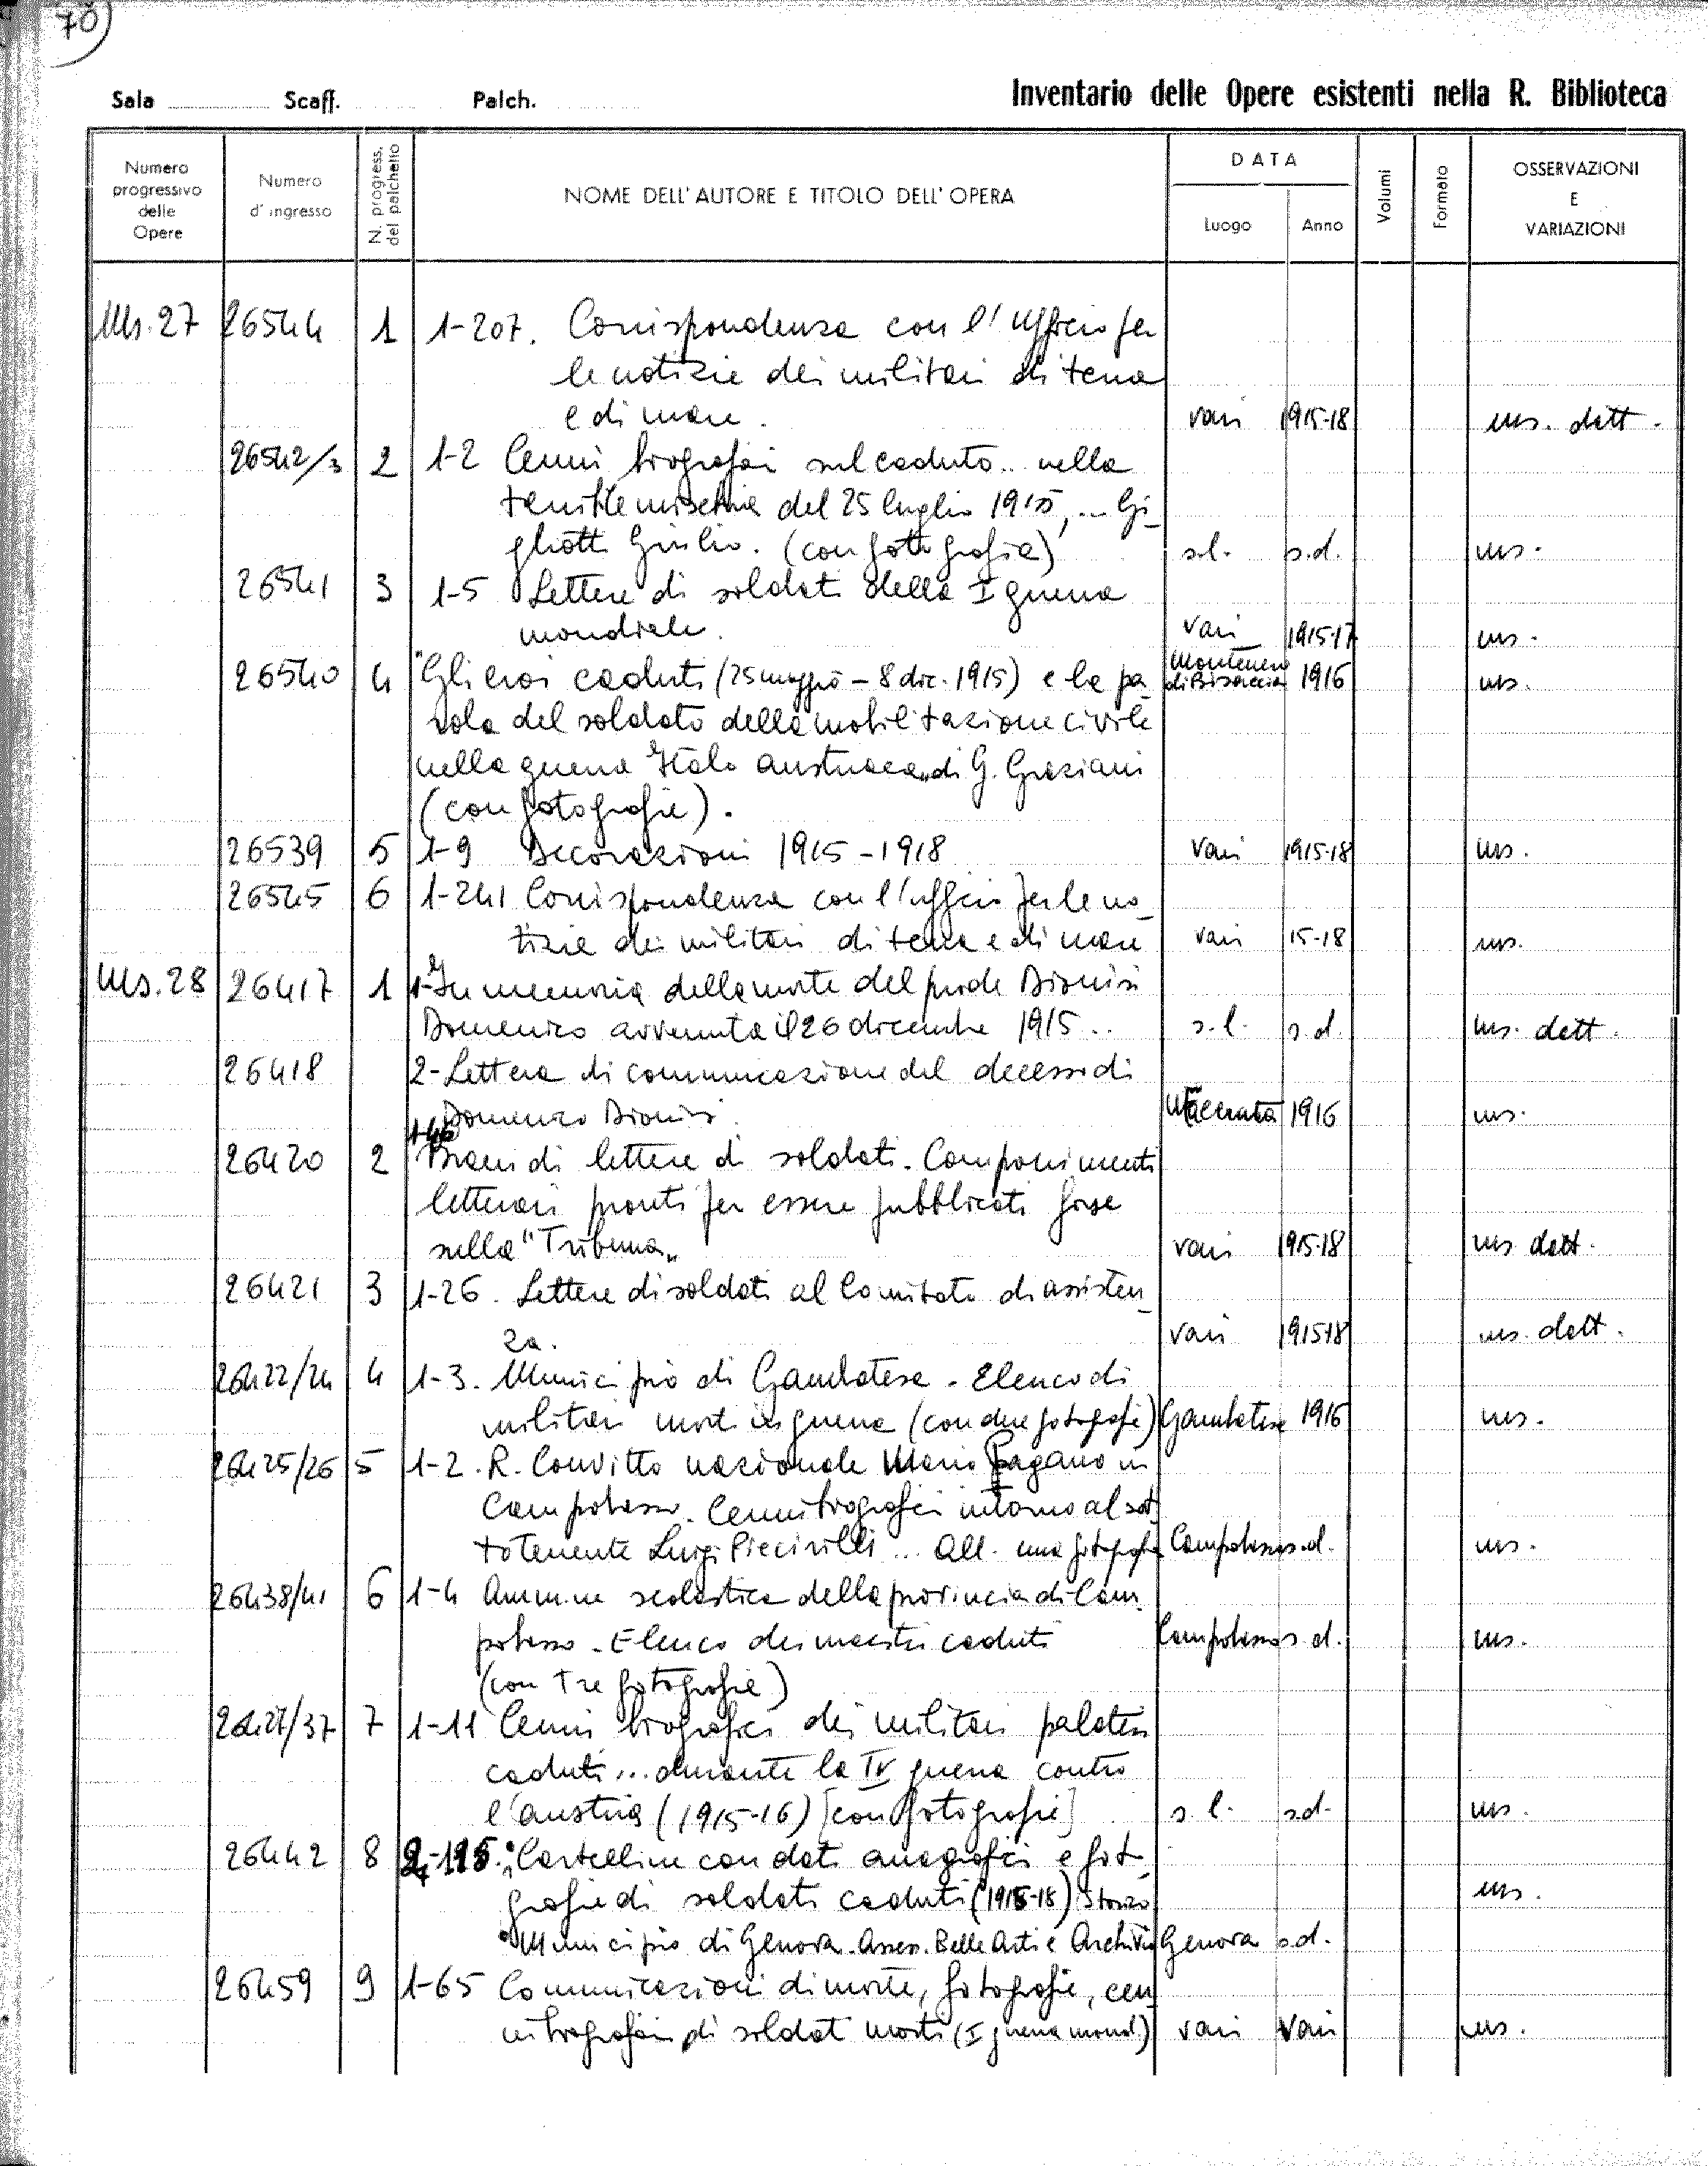 70
Sala Scaff. Palch. Inventario delle Opere esistenti nella R. Biblioteca
Numero progressivo delle Opere
Numero d'ingresso
N. progress. del palchetto
NOME DELL'AUTORE E TITOLO DELL'OPERA
DATA
Luogo Anno
Volumi
Formato
OSSERVAZIONI E VARIAZIONI
Ms. 27 26544 1 1-207. Corrispondenza con l'Ufficio per
le notizie dei militari di terra
e di mare. vari 1915-18 ms. datt.
26542/3 2 1-2 Cenni biografici sul caduto... nella
terribile mischia del 25 luglio 1915, ... Gi-
gliotti Giulio. (con fotografia) s.l. s.d. ms.
26541 3 1-5 Lettere di soldati della I guerra
mondiale. vari 1915-17 ms.
26540 4 "Gli eroi caduti (25 maggio - 8 dic. 1915) e la pa- Montenero di Bisaccia 1916 ms.
rola del soldato della mobilitazione civile
nella guerra Italo austriaca" di G. Graziani
(con fotografie).
26539 5 1-9 Decorazioni 1915-1918 vari 1915-18 ms.
26545 6 1-241 Corrispondenza con l'ufficio per le no-
tizie dei militari di terra e di mare vari 15-18 ms.
Ms. 28 26417 1 1-In memoria della morte del prode Dionisi
Domenico avvenuta il 26 dicembre 1915... s.l. s.d. ms. datt.
26418 2-Lettera di comunicazione del decesso di
Domenico Dionisi. Macerata 1916 ms.
26420 2 Brani di lettere di soldati. Componimenti
letterari pronti per essere pubblicati forse
sulla "Tribuna" vari 1915-18 ms. datt.
26421 3 1-26. Lettere di soldati al Comitato di assisten-
za. vari 1915-18 ms. datt.
26422/24 4 1-3. Municipio di Gambatesa - Elenco di
militari morti in guerra (con due fotografie) Gambatesa 1916 ms.
26425/26 5 1-2. R. Convitto nazionale Mario Pagano in
Campobasso. Cenni biografici intorno al sot-
totenente Luigi Piccirilli... All. una fotografia Campobasso s.d. ms.
26438/41 6 1-4 Amm.ne scolastica della provincia di Cam-
pobasso - Elenco dei maestri caduti Campobasso s.d. ms.
(con tre fotografie)
26427/37 7 1-11 Cenni biografici dei militari palatesi
caduti... durante la IV guerra contro
l'austria (1915-16) [con fotografie] s.l. s.d. ms.
26442 8 Cartelline con dati anagrafici e foto-
grafie di soldati caduti (1915-18) Storico ms.
Municipio di Genova. Assess. Belle Arti e Archivio Genova s.d.
26459 9 1-65 Comunicazioni di morte, fotografie, cen-
ni biografici di soldati morti (I guerra mond.) vari vari ms.